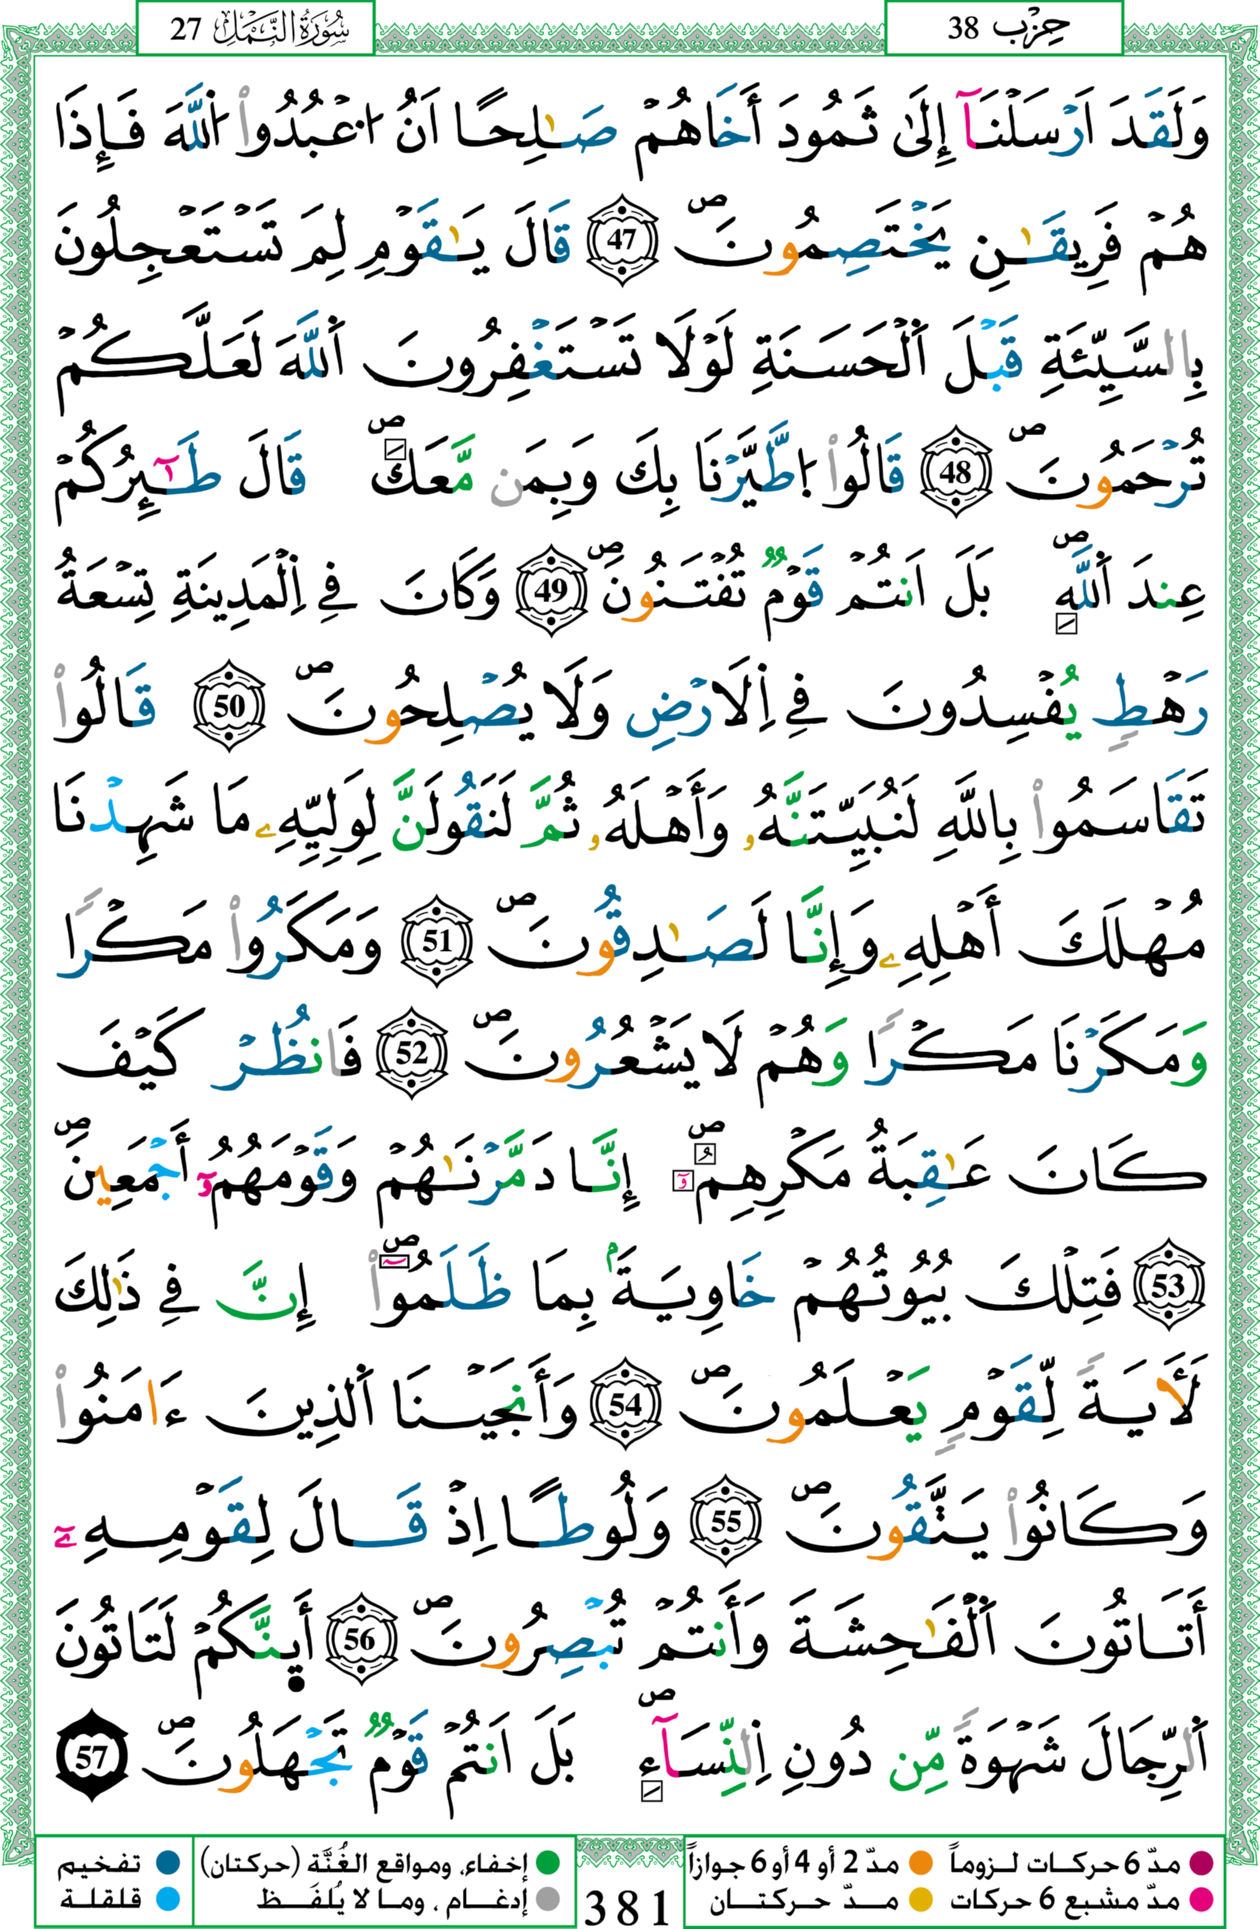 حِزْب 38
سُورَةُ النَّمْلِ 27
وَلَقَدَ اَرْسَلْنَآ إِلَىٰ ثَمُودَ أَخَاهُمْ صَٰلِحًا اَنُ اعْبُدُوا۟ اللَّهَ فَإِذَا
هُمْ فَرِيقَٰنِ يَخْتَصِمُونَۖ 47 قَالَ يَٰقَوْمِ لِمَ تَسْتَعْجِلُونَ
بِالسَّيِّئَةِ قَبْلَ اَلْحَسَنَةِ لَوْلَا تَسْتَغْفِرُونَ اَللَّهَ لَعَلَّكُمْ
تُرْحَمُونَۖ 48 قَالُوا۟ اطَّيَّرْنَا بِكَ وَبِمَن مَّعَكَۖ قَالَ طَٰٓئِرُكُمْ
عِندَ اَللَّهِۖ بَلَ اَنتُمْ قَوْمٌ تُفْتَنُونَۖ 49 وَكَانَ فِے اِلْمَدِينَةِ تِسْعَةُ
رَهْطٍ يُفْسِدُونَ فِے اِلَارْضِ وَلَا يُصْلِحُونَۖ 50 قَالُوا۟
تَقَاسَمُوا۟ بِاللَّهِ لَنُبَيِّتَنَّهُۥ وَأَهْلَهُۥ ثُمَّ لَنَقُولَنَّ لِوَلِيِّهِۦ مَا شَهِدْنَا
مُهْلَكَ أَهْلِهِۦ وَإِنَّا لَصَٰدِقُونَۖ 51 وَمَكَرُوا۟ مَكْرًا
وَمَكَرْنَا مَكْرًا وَهُمْ لَا يَشْعُرُونَۖ 52 فَانظُرْ كَيْفَ
كَانَ عَٰقِبَةُ مَكْرِهِمُۥٓۖ إِنَّا دَمَّرْنَٰهُمْ وَقَوْمَهُمُۥٓ أَجْمَعِينَۖ
53 فَتِلْكَ بُيُوتُهُمْ خَاوِيَةَۢ بِمَا ظَلَمُوٓا۟ۖ إِنَّ فِے ذَٰلِكَ
لَأَيَةً لِّقَوْمٍ يَعْلَمُونَۖ 54 وَأَنجَيْنَا اَلذِينَ ءَامَنُوا۟
وَكَانُوا۟ يَتَّقُونَۖ 55 وَلُوطًا اِذْ قَالَ لِقَوْمِهِۦٓ
أَتَاتُونَ اَلْفَٰحِشَةَ وَأَنتُمْ تُبْصِرُونَۖ 56 أَىِٕنَّكُمْ لَتَاتُونَ
اَلرِّجَالَ شَهْوَةً مِّن دُونِ اِلنِّسَآءِۖ بَلَ اَنتُمْ قَوْمٌ تَجْهَلُونَۖ 57
مدّ 6 حركات لـزومـاً مدّ 2 أو 4 أو 6 جوازاً
مدّ مشبع 6 حركات مـدّ حـركتـان
381
إخفاء، ومواقع الغُنَّة (حركتان) تفخيم
إدغـام ، ومـا لا يُلفَـظ قلقلة